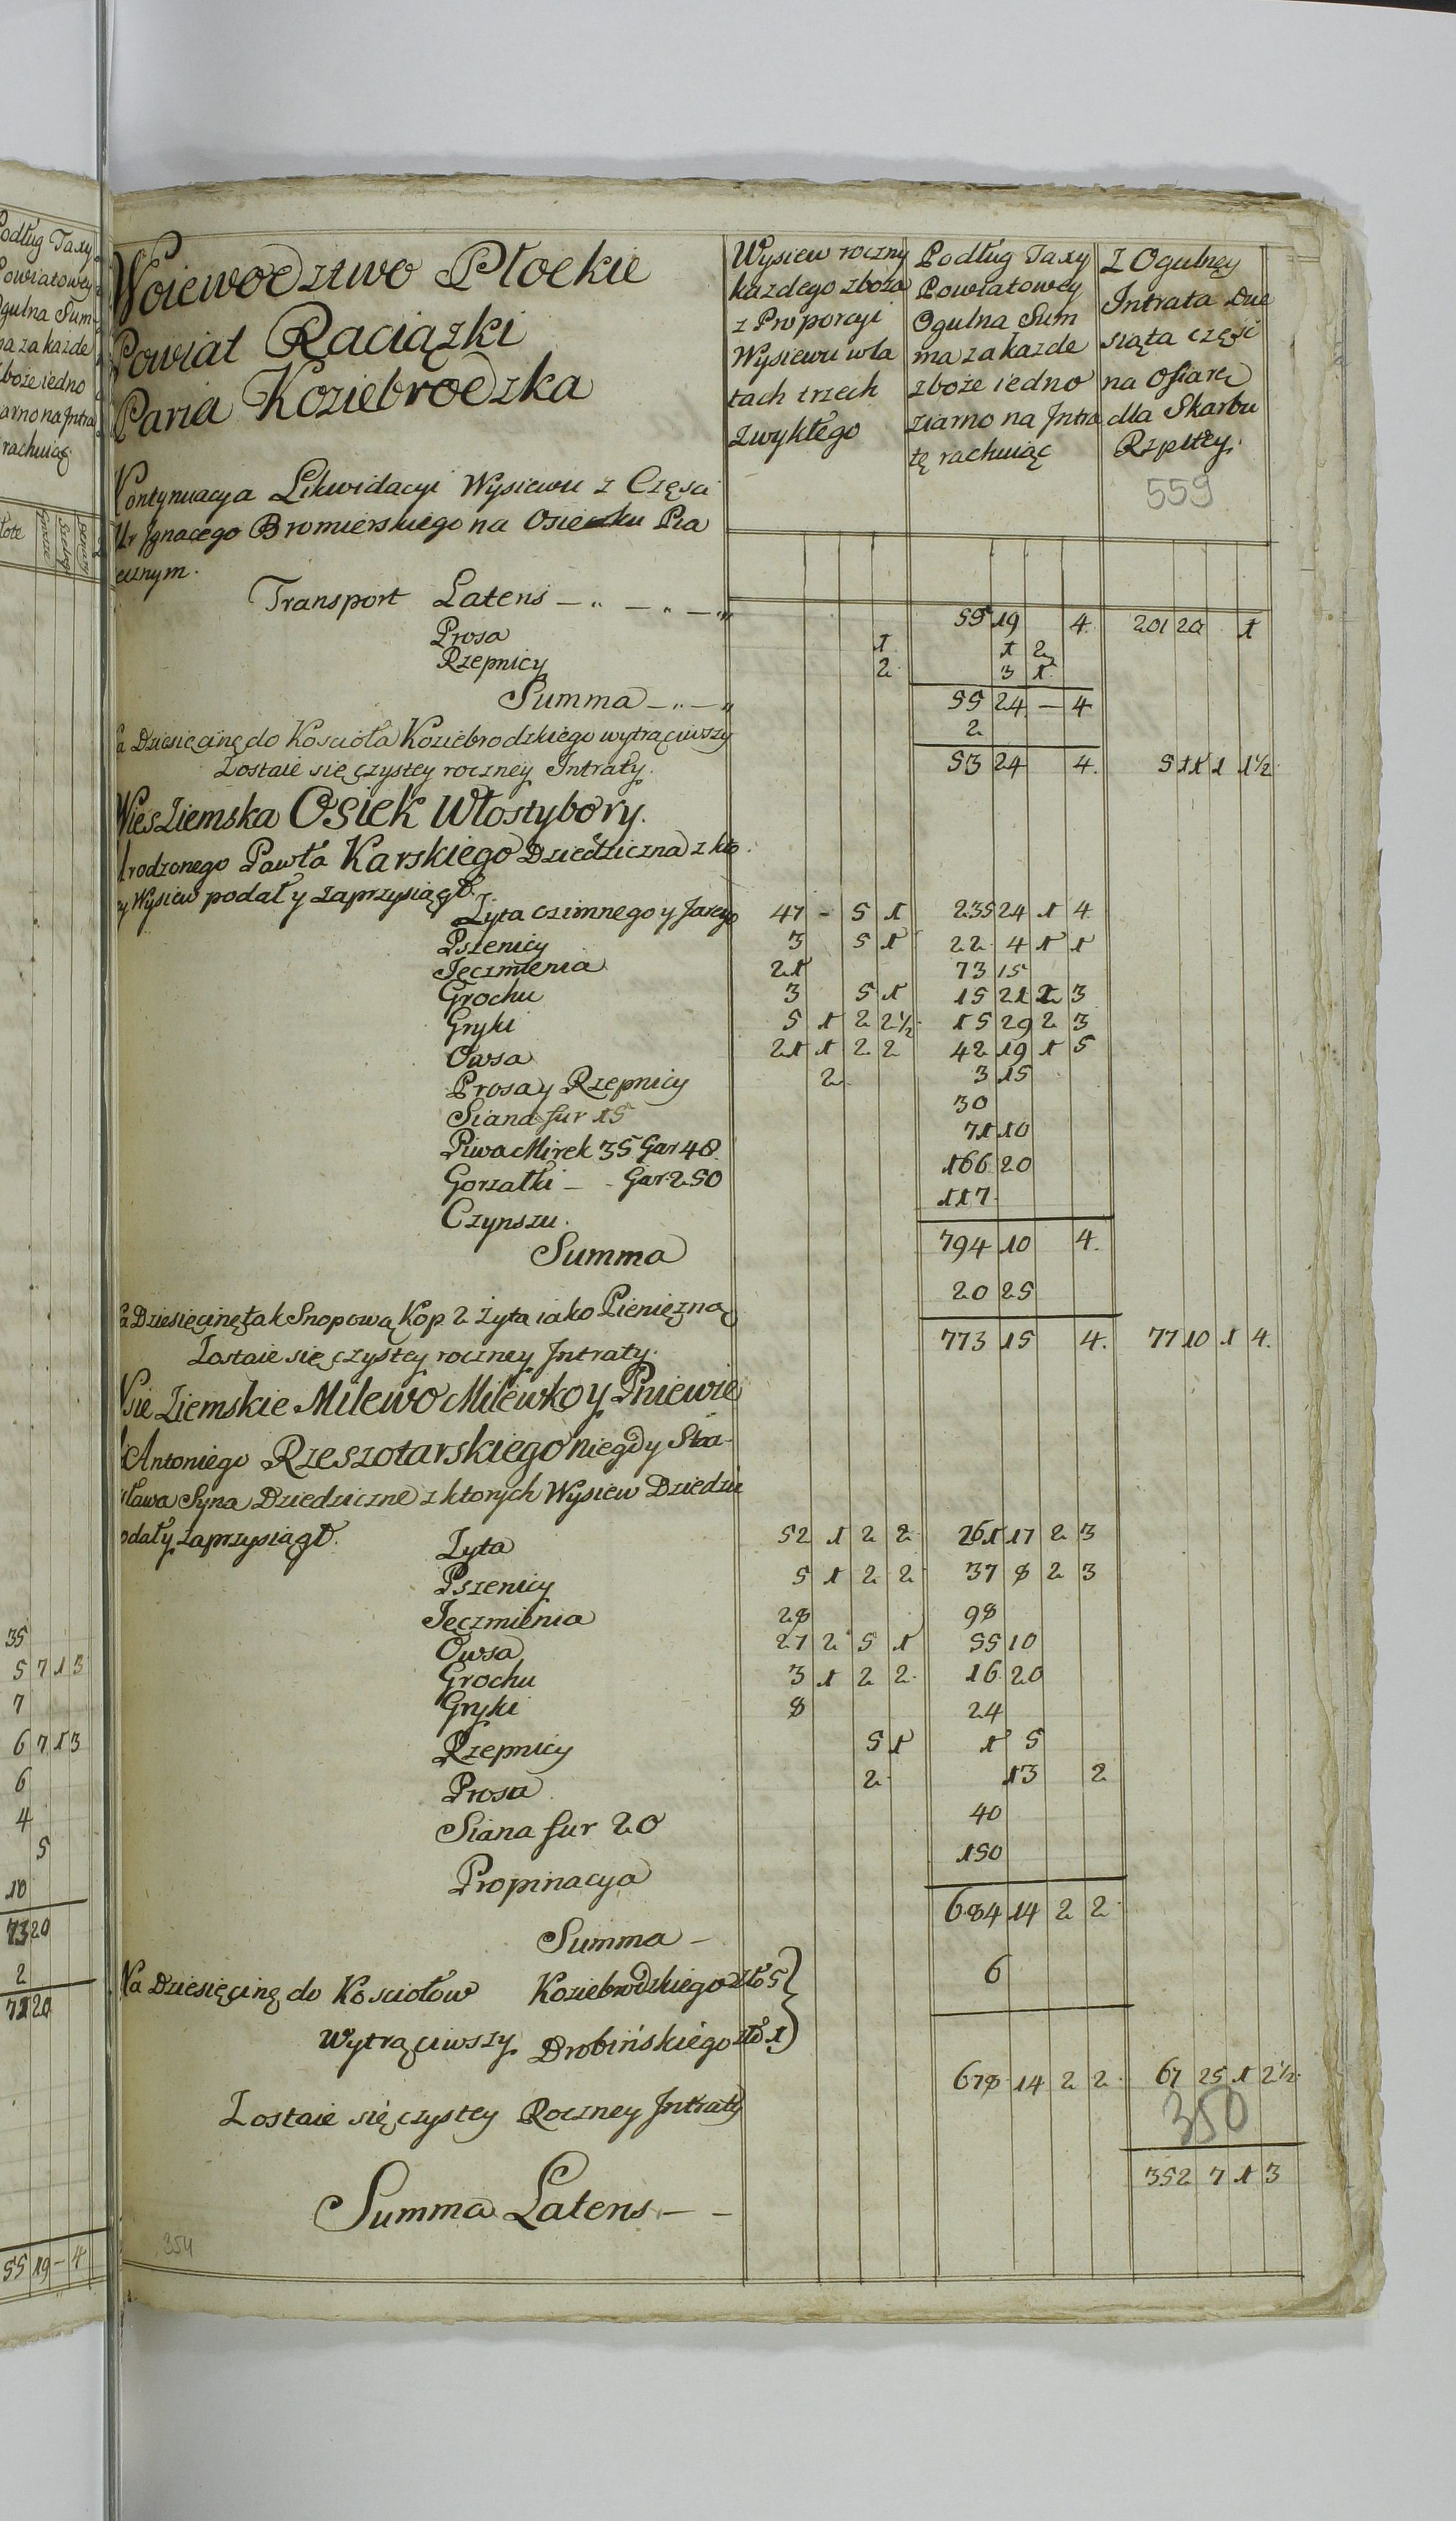 Podług Taxy
Powiatowey
Ogulna Sum
ma za kazde
zboże iedno
ziarno na Intra
rachuiąc
35
5 7 1 3
7
6 7 1 3
6
4
5
10
73 20
2
71 20
55 19 - 4
Woiewodztwo Płockie
Powiat Raciązki
Paria Koziebrodzka
Wysiew roczny
kazdego zboza
z Proporcyi
Wysiewu w la
tach trzech
zwykłego
Podług Taxy
Powiatowey
Ogulna Sum
ma za kazde
zboże iedno
ziarno na Intra
tę rachuiąc
Z Ogulney
Intrata Dzie
siąta część
na Ofiarę
dla Skarbu
Rzpltey.
559
Kontynuacya Likwidacyi Wysiewu z Częsci
Ur Ignacego Bromierskiego na Osieczku Pia
ecznym.
Transport Latens - " - " - " 55 19 4. 201 20 1
Prosa 1 1 2
Rzepnicy 2. 3 1.
Summa - " - " 55 24 - 4
a Dziesięcinę do Kościoła Koziebrodzkiego wytrąciwszy 2
Zostaie się czystey roczney Intraty. 53 24 4. 5 11 1 1½
Wies Ziemska Osiek Włostybory.
Urodzonego Pawła Karskiego Dziedziczna z kto
ry Wysiew podał y zaprzysiągł.
Zyta ozimnego y Jarego 47 - 5 1 235 24 1 4
Pszenicy 3 5 1 22 4 1 1
Jęczmienia 21 73 15
Grochu 3 5 1 15 21 2 3
Gryki 5 1 2 2½ 15 29 2 3
Owsa 21 1 2 2 42 19 1 5
Prosa y Rzepnicy 2 3 15
Siana fur 15 30
Piwa Mirek 35 Gar 48 71 10
Gorzałki - - Gar. 250 166 20
Czynszu. 117.
Summa 794 10 4.
a Dziesięcinę tak Snopową Kop. 2 Żyta iako Pienięzną 20 25
Zostaie się czystey roczney Intraty. 773 15 4. 77 10 1 4.
Wsie Ziemskie Milewo Milewko y Pniewie
Antoniego Rzeszotarskiego niegdy Sta-
sława Syna Dziedziczne z ktorych Wysiew Dziedzic
podał y zaprzysiągł.
Zyta 52 1 2 2 261 17 2 3
Pszenicy 5 1 2 2 37 8 2 3
Jęczmienia 28 98
Owsa 27 2 5 1 55 10
Grochu 3 1 2 2. 16 20
Gryki 8 24
Rzepnicy 5 1 1 5
Prosa 2. 13 2
Siana fur 20 40
Propinacya 150
Summa - 684 14 2 2
Na Dziesięcinę do Kosciołow Koziebrodzkiego złŏ 5} 6
Wytrąciwszy Drobińskiego złŏ 1}
Zostaie się czystey Roczney Intraty 678 14 2 2. 67 25 1 2½
350
Summa Latens - - 352 7 1 3
354